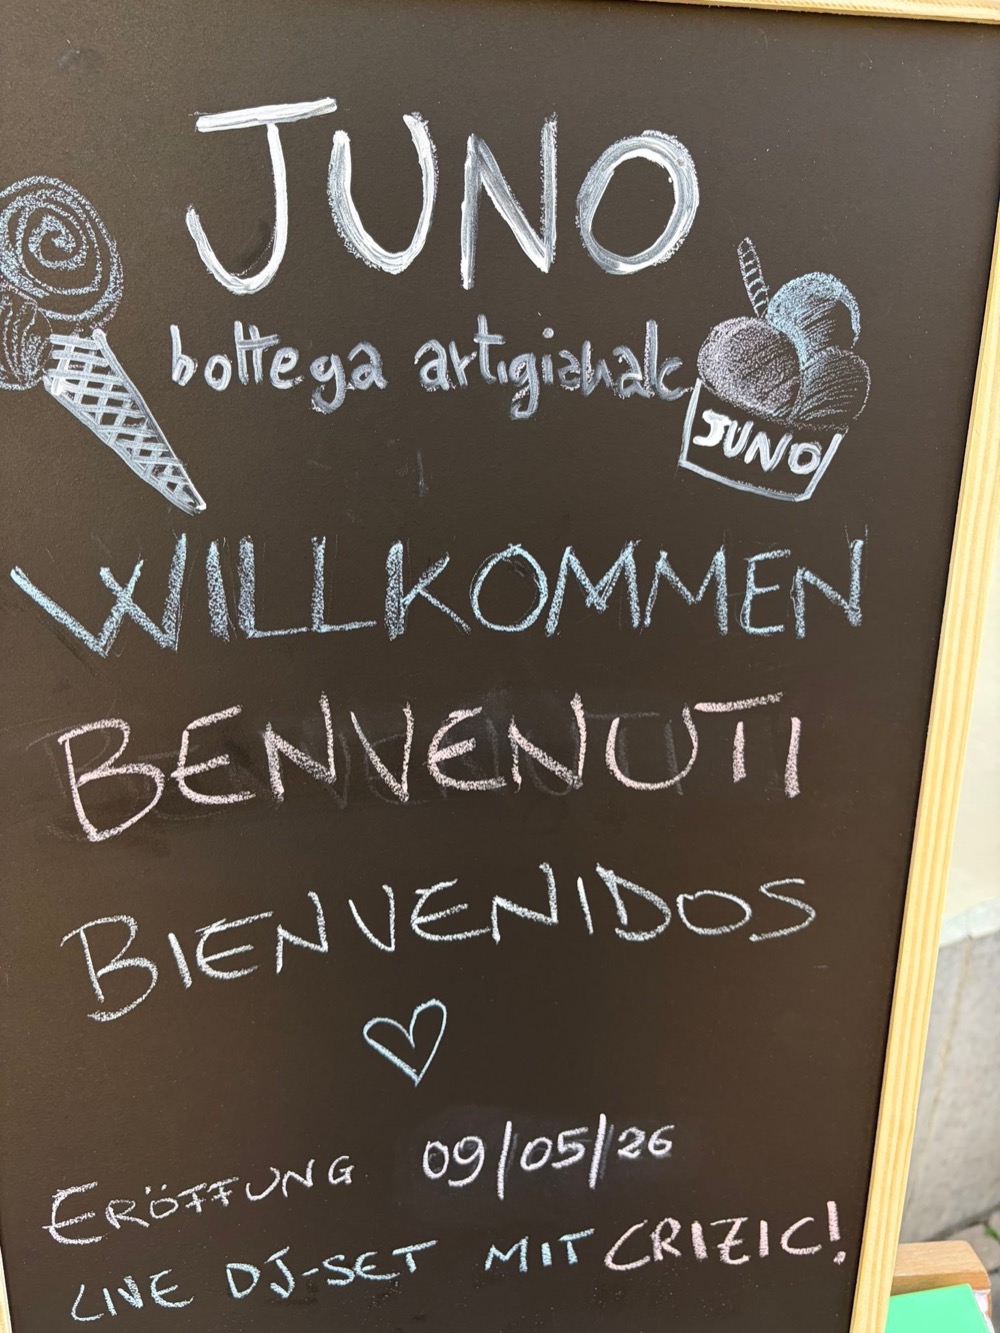 JUNO
bottega artigianale
JUNO
WILLKOMMEN
BENVENUTI
BIENVENIDOS
ERÖFFUNG 09/05/26
LIVE DJ-SET MIT CRIZIC!